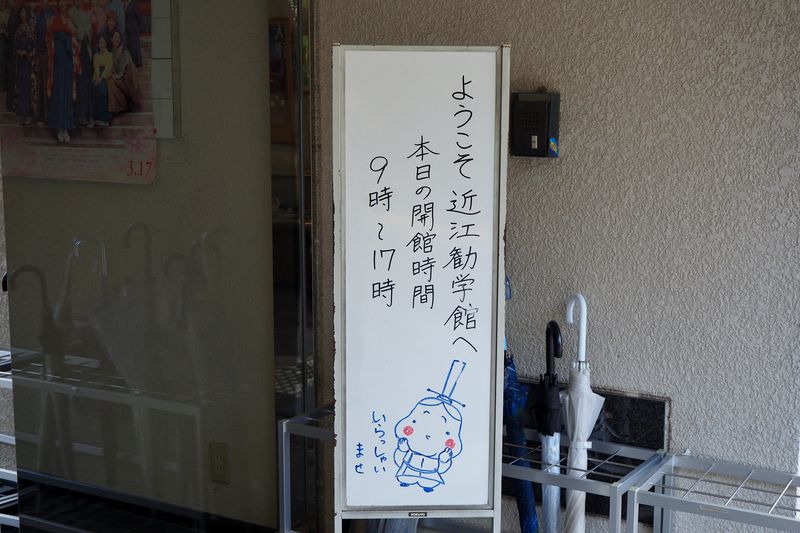 ようこそ 近江勧学館へ
本日の開館時間
9時~17時
いらっしゃい
ませ
3.17
KOKUYO